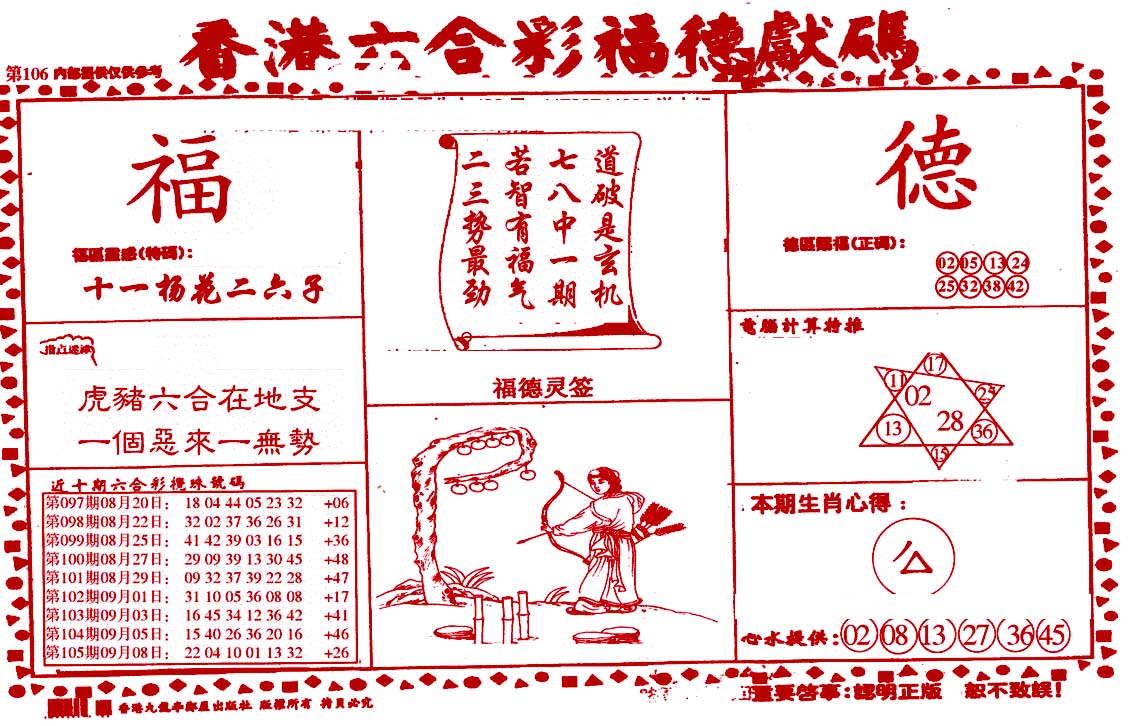 香港六合彩福德獻碼
第106 內部提供仅供参考
福
福區靈感(特碼):
十一杨花二六子
指点迷津
虎豬六合在地支
一個惡來一無勢
近十期六合彩攪珠號碼
第097期08月20日: 18 04 44 05 23 32 +06
第098期08月22日: 32 02 37 36 26 31 +12
第099期08月25日: 41 42 39 03 16 15 +36
第100期08月27日: 29 09 39 13 30 45 +48
第101期08月29日: 09 32 37 39 22 28 +47
第102期09月01日: 31 10 05 36 08 08 +17
第103期09月03日: 16 45 34 12 36 42 +41
第104期09月05日: 15 40 26 36 20 16 +46
第105期09月08日: 22 04 10 01 13 32 +26
道破是玄机
七八中一期
若智有福气
二三势最劲
福德灵签
德
德區賜福(正碼):
02 05 13 24
25 32 38 42
電腦計算特推
17
11 02 25
13 28 36
15
本期生肖心得:
心水提供: 02 08 13 27 36 45
重要啓事:認明正版 恕不致誤!
版權所有